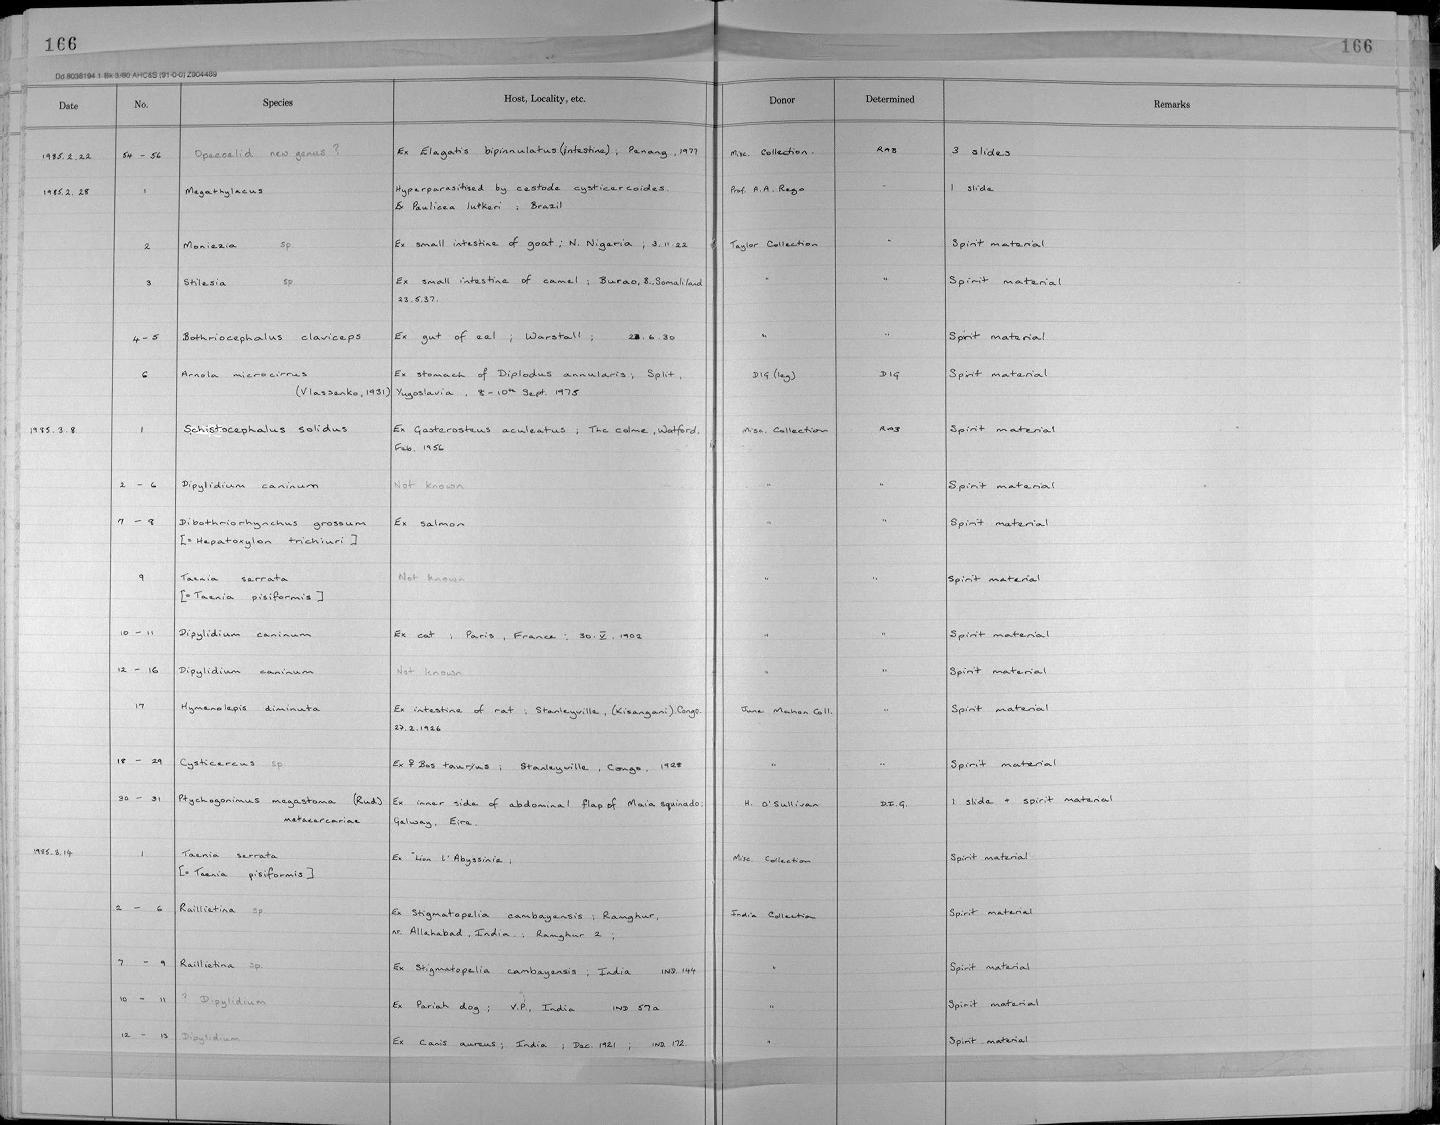 166
166
Dd 8038194 1 Bk 3/80 AHC&S (91-0-0) Z904489
Date No. Species Host, Locality, etc. Donor Determined Remarks
1985.2.22 54 - 56 Opecoelid new genus ? Ex Elagatis bipinnulatus (intestine) ; Penang, 1977 Misc. Collection. RAB 3 slides
1985.2.28 1 Megathylacus Hyperparasitised by cestode cysticercoides. Prof. A.A. Rego " 1 slide
Ex Paulicea lutkeri ; Brazil
2 Moniezia sp. Ex small intestine of goat ; N. Nigeria ; 3.11.22 Taylor Collection " Spirit material
3 Stilesia sp. Ex small intestine of camel ; Burao, B. Somaliland " " Spirit material
23.5.37.
4-5 Bothriocephalus claviceps Ex gut of eel ; Warstall ; 23.6.30 " " Spirit material
6 Arnola microcirrus Ex stomach of Diplodus annularis ; Split, DIG (leg) DIG Spirit material
(Vlassenko, 1931) Yugoslavia, 8-10th Sept. 1975
1985.3.8. 1 Schistocephalus solidus Ex Gasterosteus aculeatus ; The colme, Watford. Misc. Collection RAB Spirit material
Feb. 1956
2 - 6 Dipylidium caninum Not known " " Spirit material
7 - 8 Dibothriorhynchus grossum Ex salmon " " Spirit material
[= Hepatoxylon trichiuri ]
9 Taenia serrata Not known " " Spirit material
[= Taenia pisiformis ]
10 - 11 Dipylidium caninum Ex cat ; Paris, France : 30.V.1902 " " Spirit material
12 - 16 Dipylidium caninum Not known " " Spirit material
17 Hymenolepis diminuta Ex intestine of rat ; Stanleyville, (Kisangani). Congo. June Mahon Coll. " Spirit material
27.2.1926
18 - 29 Cysticercus sp. Ex ♀ Bos taurius ; Stanleyville, Congo, 1928 " " Spirit material
30 - 31 Ptychogonimus megastoma (Rud) Ex inner side of abdominal flap of Maia squinado; H. O'Sullivan D.I.G. 1 slide + spirit material
metacercariae Galway, Eire.
1985.3.14 1 Taenia serrata Ex "Lion l'Abyssinie ; Misc. Collection Spirit material
[= Taenia pisiformis ]
2 - 6 Raillietina sp. Ex Stigmatopelia cambayensis ; Ramghur, India Collection Spirit material
nr. Allahabad, India. ; Ramghur 2 ;
7 - 9 Raillietina sp. Ex Stigmatopelia cambayensis ; India IND. 144 " Spirit material
10 - 11 ? Dipylidium Ex Pariah dog ; V.P., India IND 57a " Spirit material
12 - 13 Dipylidium Ex Canis aureus ; India ; Dec. 1921 ; IND. 172. " Spirit material